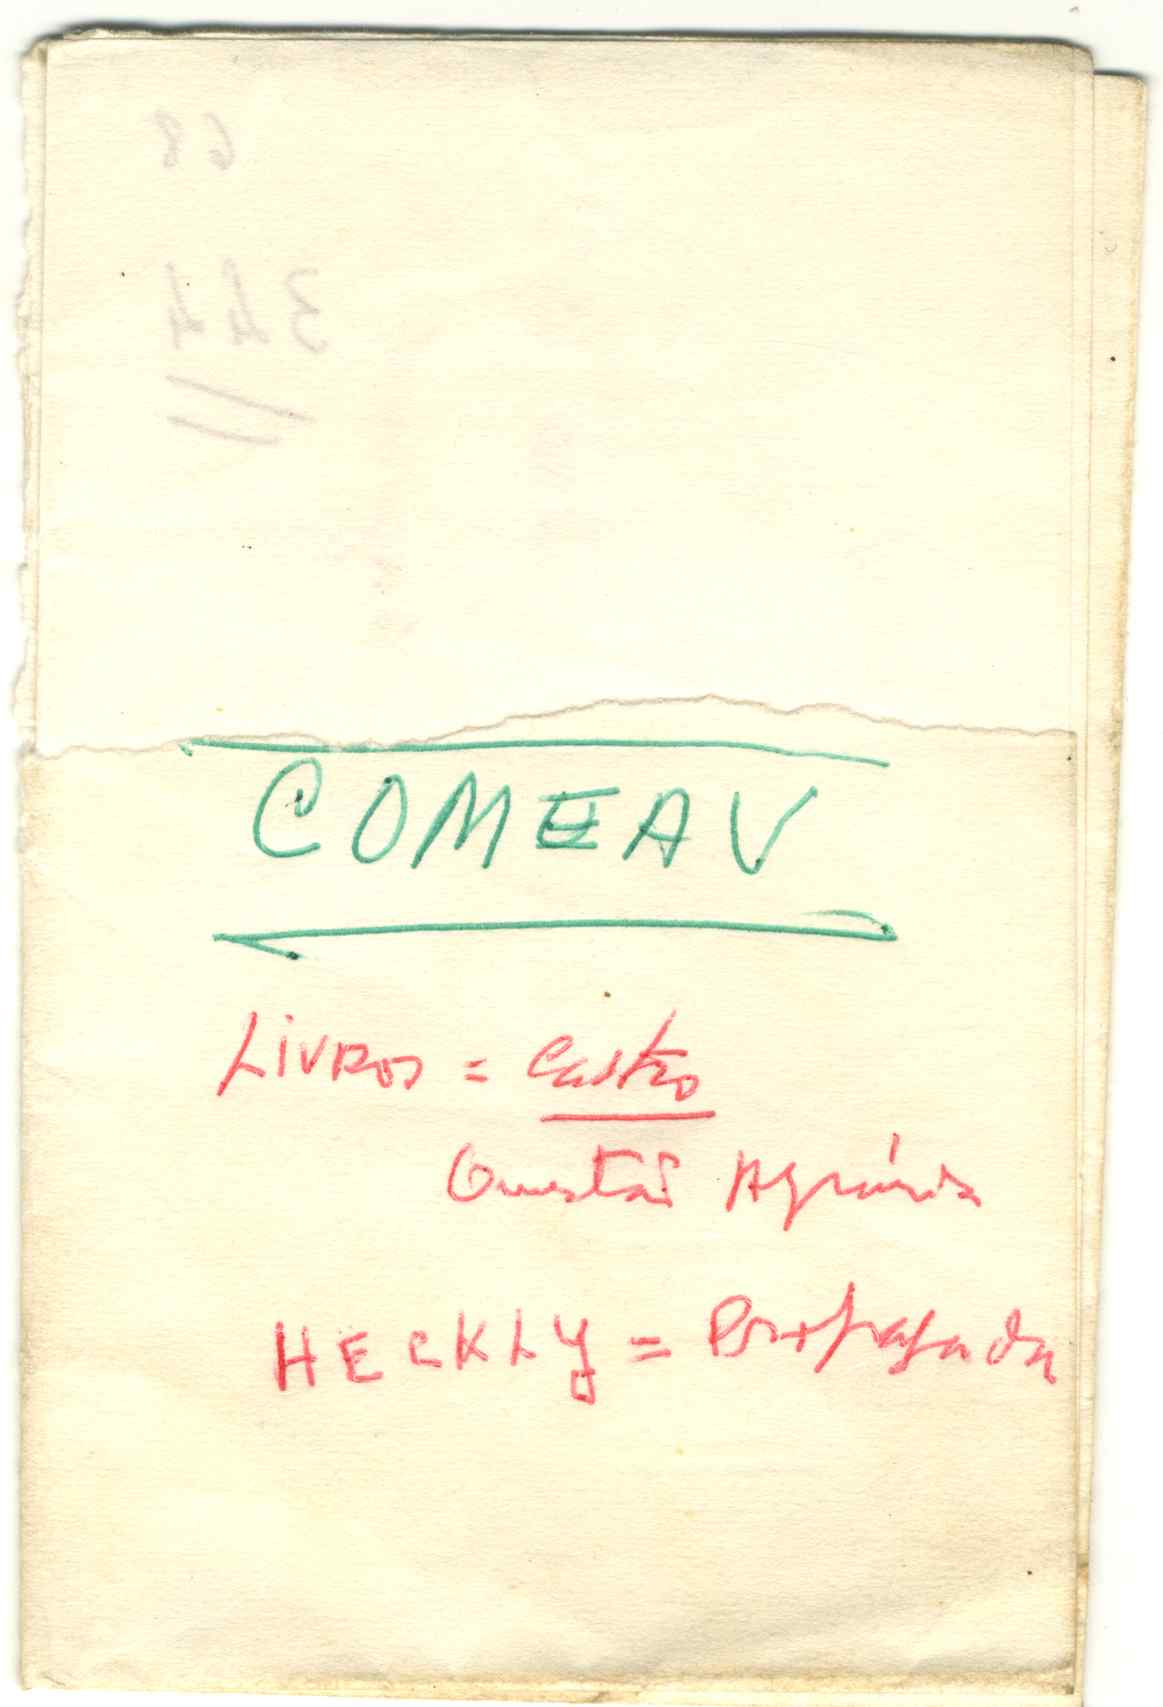 68
344
COMEAV
LIVROS = Castro
Questão Agrária
HECKLY = Propaganda